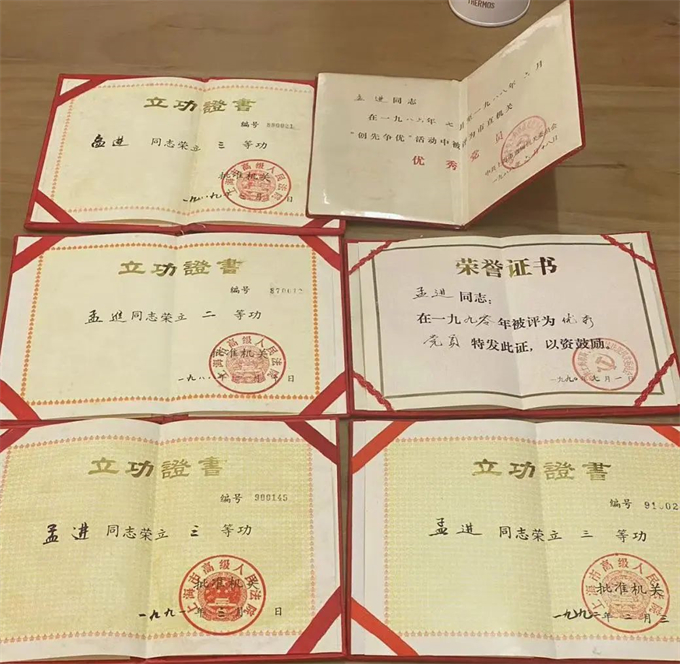 THERMOS
立功證書
编号 890021
孟进 同志荣立 三 等功
上海市高级人民法院
批准机关
孟进 同志
"创先争优"活动中被评为市直机关
优秀党员
立功證書
编号
孟進 同志荣立 二 等功
上海市高级人民法院
批准机关
荣誉证书
孟进 同志:
在一九九零年被评为优秀
党员 特发此证,以资鼓励。
一九九〇年七月一日
立功證書
编号 900145
孟进 同志荣立 三 等功
上海市高级人民法院
批准机关
一九九一年三月 日
立功證書
编号
孟进 同志荣立 三 等功
上海市高级人民法院
批准机关
一九九二年二月三